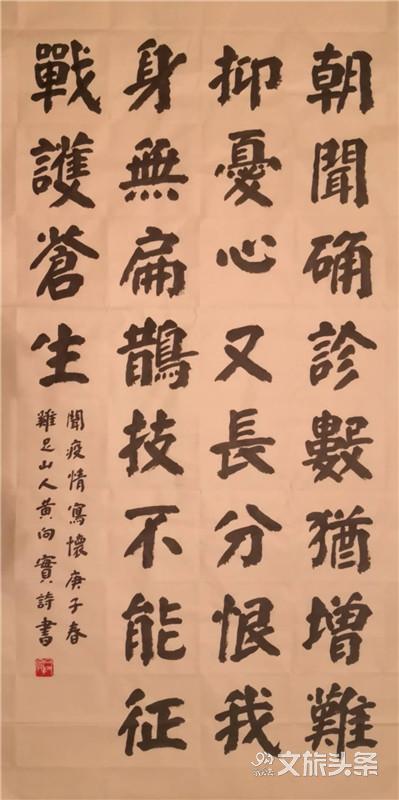 朝聞确診數猶增難
抑憂心又長分恨我
身無扁鵲技不能征
戰護蒼生
聞疫情寫懷庚子春
雞足山人黃向實詩書
文旅头条